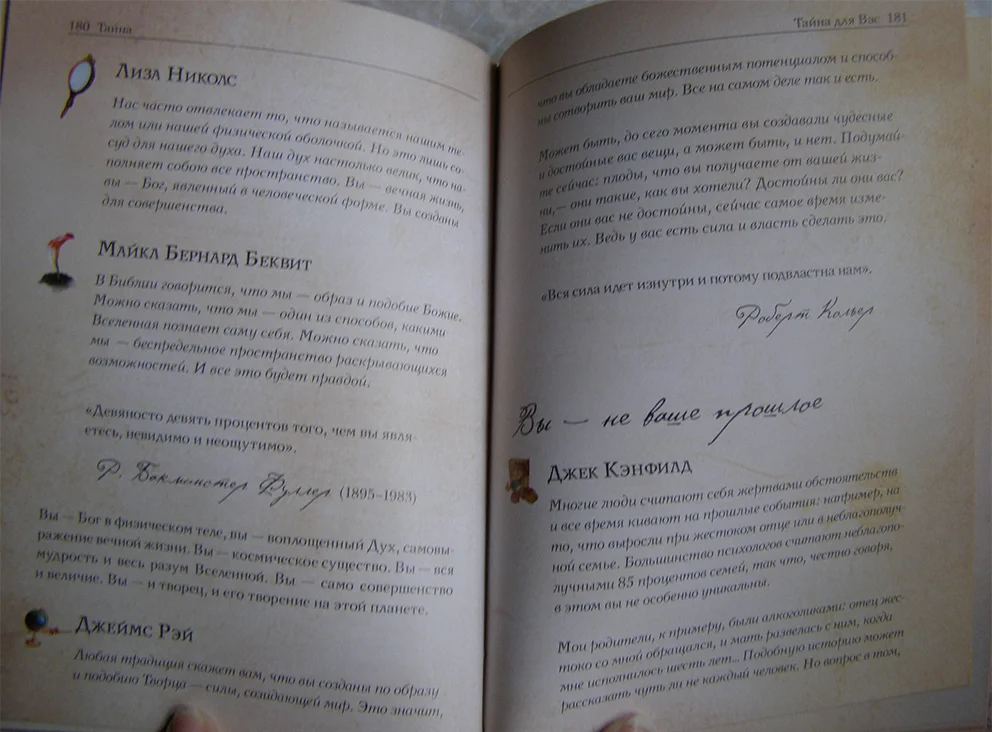 180 Тайна
Лиза Николс
Нас часто отвлекает то, что называется нашим те-
лом или нашей физической оболочкой. Но это лишь со-
суд для нашего духа. Наш дух настолько велик, что на-
полняет собою все пространство. Вы — вечная жизнь,
вы — Бог, явленный в человеческой форме. Вы созданы
для совершенства.
Майкл Бернард Беквит
В Библии говорится, что мы — образ и подобие Божие.
Можно сказать, что мы — один из способов, какими
Вселенная познает саму себя. Можно сказать, что
мы — беспредельное пространство раскрывающихся
возможностей. И все это будет правдой.
«Девяносто девять процентов того, чем вы явля-
етесь, невидимо и неощутимо».
Р. Бакминстер Фуллер (1895–1983)
Вы — Бог в физическом теле, вы — воплощенный Дух, самовы-
ражение вечной жизни. Вы — космическое существо. Вы — вся
мудрость и весь разум Вселенной. Вы — само совершенство
и величие. Вы — и творец, и его творение на этой планете.
Джеймс Рэй
Любая традиция скажет вам, что вы созданы по образу
и подобию Творца — силы, созидающей мир. Это значит,
Тайна для Вас 181
что вы обладаете божественным потенциалом и способ-
ны сотворить ваш мир. Все на самом деле так и есть.
Может быть, до сего момента вы создавали чудесные
и достойные вас вещи, а может быть, и нет. Подумай-
те сейчас: плоды, что вы получаете от вашей жиз-
ни,— они такие, как вы хотели? Достойны ли они вас?
Если они вас не достойны, сейчас самое время изме-
нить их. Ведь у вас есть сила и власть сделать это.
«Вся сила идет изнутри и потому подвластна нам».
Роберт Кольер
Вы — не ваше прошлое
Джек Кэнфилд
Многие люди считают себя жертвами обстоятельств
и все время кивают на прошлые события: например, на
то, что выросли при жестоком отце или в неблагополуч-
ной семье. Большинство психологов считают неблагопо-
лучными 85 процентов семей, так что, честно говоря,
в этом вы не особенно уникальны.
Мои родители, к примеру, были алкоголиками: отец жес-
токо со мной обращался, и мать развелась с ним, когда
мне исполнилось шесть лет... Подобную историю может
рассказать чуть ли не каждый человек. Но вопрос в том,